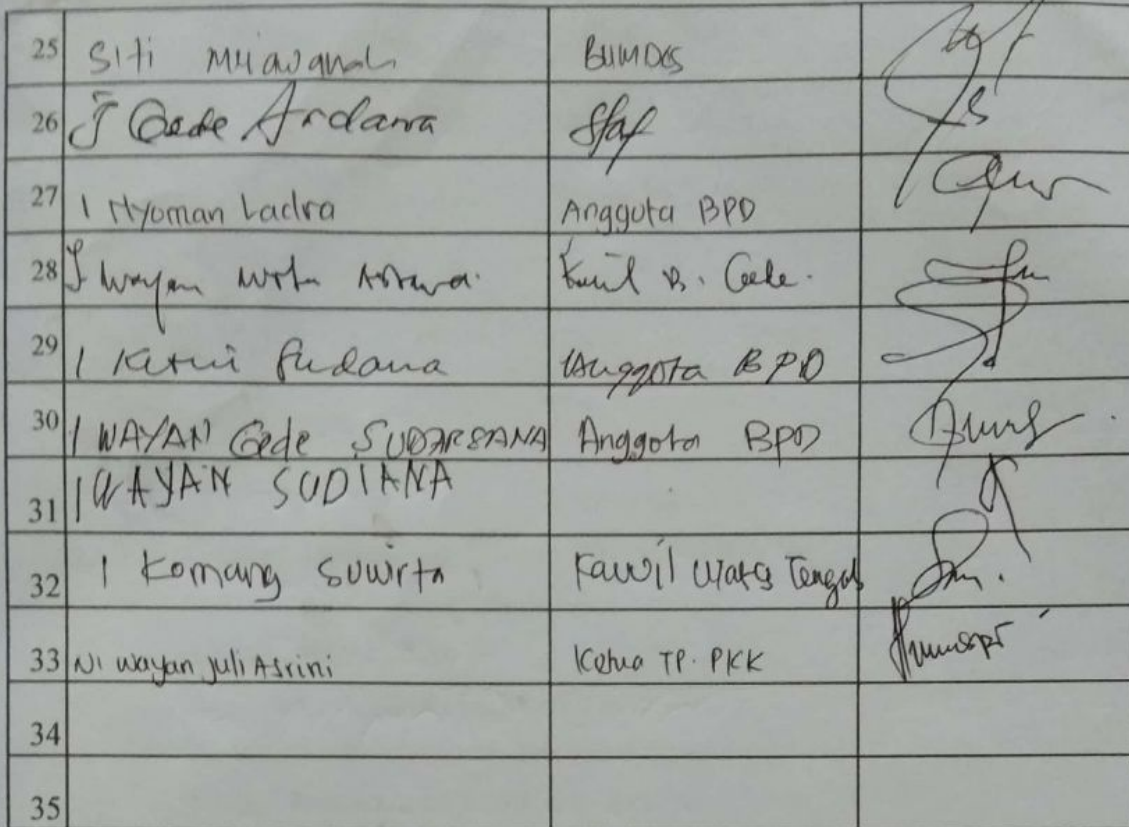 25 Siti BUMDES
26 I Gede Ardana Staf
27 I Nyoman Ladra Anggota BPD
28 I Wayan
29 I Ketut Sudana Anggota BPD
30 I WAYAN Gede SUDARSANA Anggota BPD
31 I WAYAN SUDIANA
32 I Komang Suwirta Kawil Tengah
33 Ni Wayan Juli Asrini Ketua TP. PKK
34
35